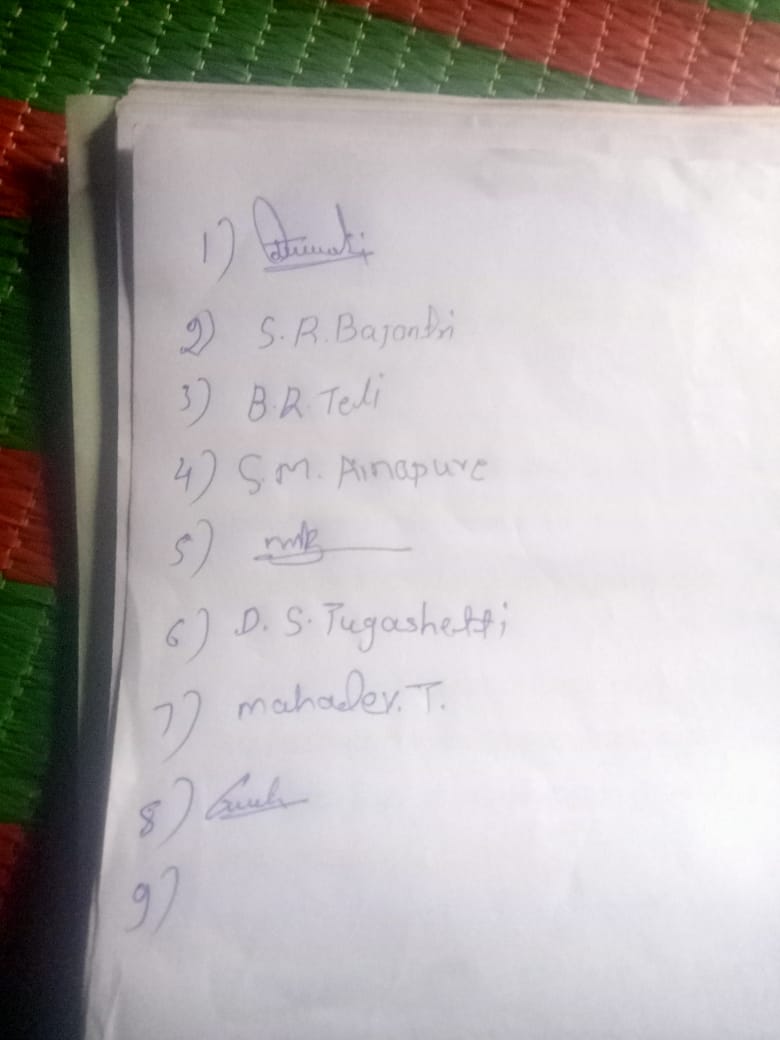 1)
2) S. R. Bajantri
3) B. R. Teli
4) S. M. Ainapure
5)
6) D. S. Tugashetti
7) mahadev. T.
8)
9)